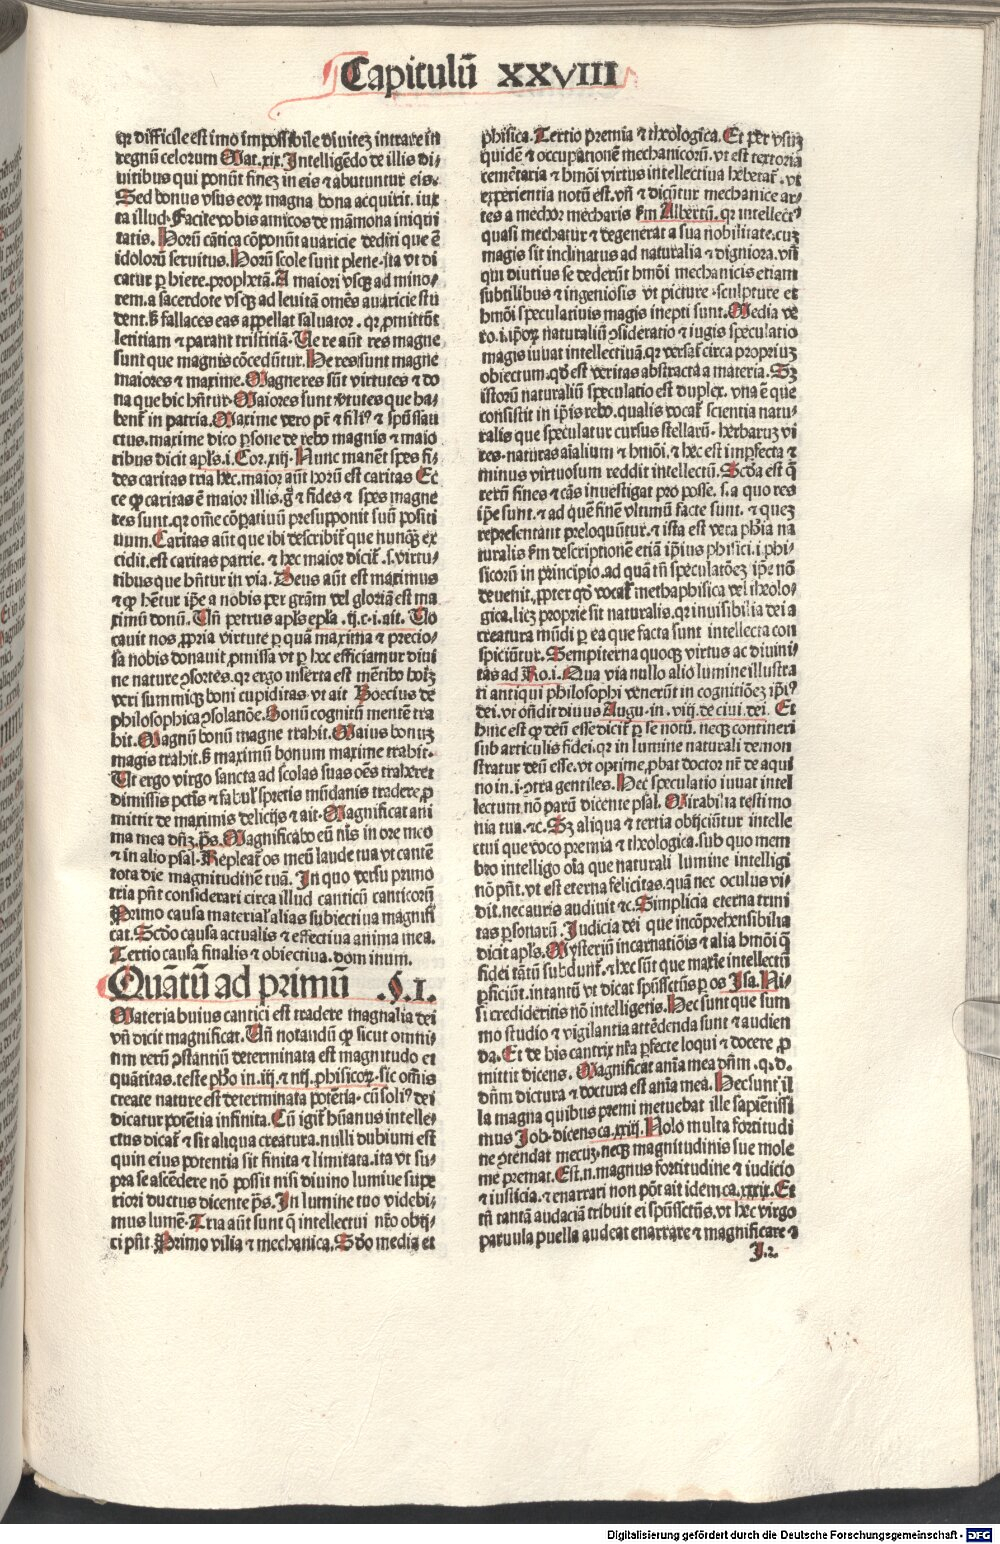 Capitulū XXVIII
qꝛ difficile est imo impossibile diuitez intrare in
regnū celorum Mat.xix. Intelligēdo de illis di⸗
uitibus qui ponūt finez in eis ⁊ abutuntur eis.
Sed bonus vsus eoꝝ magna bona acquirit. iux
ta illud. Facite vobis amicos de māmona iniqui
tatis. Horū cātica cōponūt auaricie dediti que ē
idolorū seruitus. Horū scole sunt plene. ita vt di
catur ꝑ hiere. prophetā. A maiori vsqꝫ ad mino⸗
rem. a sacerdote vsqꝫ ad leuitā omēs auaricie stu
dent. ß fallaces eas appellat saluator. qꝛ ꝓmittūt
letitiam ⁊ parant tristitiā. De re aūt res magne
sunt que magnis cōcedūtur. He res sunt magne
maiores ⁊ maxime. Magne res sūt virtutes ⁊ do
na que hic hn̄tur. Maiores sunt v̓tutes que ha⸗
bent̉ in patria. Maxime vero pr̄ ⁊ filiꝰ ⁊ spūssan
ctus. maxime dico ꝑsone de rebꝰ magnis ⁊ maio
ribus dicit apl̄s .i. Cor. xiij. Nunc manēt spes fi⸗
des caritas tria hec. maior aūt horū est caritas Ec
ce ꝙ caritas ē maior illis. gͦ ⁊ fides ⁊ spes magne
res sunt. qꝛ om̄e cōpatiuū presupponit suū positi
uum. Caritas aūt que ibi describit̉ que nunqꝫ ex
cidit. est caritas patrie. ⁊ hec maior dicit̉ .s. virtu⸗
tibus que hn̄tur in via. Deus aūt est maximus
⁊ ꝙ hētur ip̄e a nobis per grām vel gloriā est ma
ximū donū. Un̄ petrus apl̄s ep̄la .ij. c. i. ait. Uo
cauit nos ꝓpria virtute ꝑ quā maxima ⁊ precio⸗
sa nobis donauit ꝓmissa vt ꝑ hec efficiamur diui
ne nature ꝯsortes. qꝛ ergo inserta est mētibꝰ hoīꝫ
veri summiqꝫ boni cupiditas vt ait Boecius de
philosophica ꝯsolatōe. Bonū cognitū mentē tra
hit. Magnū bonū magne trahit. Maius bonuꝫ
magis trahit. ß maximū bonum maxime trahit.
Ut ergo virgo sancta ad scolas suas oēs traheret
dimissis pctīs ⁊ fabul̓ spretis mūdanis tradere ꝓ
mittit de maximis delicijs ⁊ ait. Magnificat ani
ma mea dn̄ꝫ. p̄s. Magnificabo eū nīs in ore meo
⁊ in alio psal. Repleat̉ os meū laude tua vt cantē
tota die magnitudinē tuā. In quo versu primo
tria pn̄t considerari circa illud canticū canticorū
Primo causa material̓ alias subiectiua magnifi
cat. Scd̄o causa actualis ⁊ effectiua anima mea.
Tertio causa finalis ⁊ obiectiua. dominum.
Quātū ad primū .§.I.
Materia huius cantici est tradere magnalia dei
vn̄ dicit magnificat. Un̄ notandū ꝙ sicut omni⸗
um rerū ꝯstantiū determinata est magnitudo et
quātitas. teste ph̄o in .iij. ⁊ iiij. phisicoꝝ. sic om̄is
create nature est determinata potētia. cū soliꝰ dei
dicatur potētia infinita. Cū igit̉ hūanus intelle⸗
ctus dicat̉ ⁊ sit aliqua creatura. nulli dubium est
quin eius potentia sit finita ⁊ limitata. ita vt su⸗
pra se ascēdere nō possit nisi diuino lumine supe
riori ductus dicente p̄s. In lumine tuo videbi⸗
mus lumē. Tria aūt sunt q̄ intellectui nr̄o obij⸗
ci pn̄t. Primo vilia ⁊ mechanica. Scd̄o media et
phisica. Tertio premia ⁊ theologica. Et per vsuꝫ
quidē ⁊ occupationē mechanicorū. vt est textoria
cemētaria ⁊ hmōi virtus intellectiua hebetat̉. vt
experientia notū est. vn̄ ⁊ dicūtur mechanice ar⸗
tes a mechor mecharis ẜm Albertū. qꝛ intellectꝰ
quasi mechatur ⁊ degenerat a sua nobilitate. cuꝫ
magis sit inclinatus ad naturalia ⁊ digniora. vn̄
qui diutius se dederūt hmōi mechanicis etiam
subtilibus ⁊ ingeniosis vt picture. sculpture et
hmōi speculatiuis magis inepti sunt. Media ve
ro .i. ip̄oꝝ naturaliū ꝯsideratio ⁊ iugis speculatio
magis iuuat intellectiuā. qꝛ versat̉ circa propriuꝫ
obiectum. qd̄ est veritas abstracta a materia. Sꝫ
istorū naturaliū speculatio est duplex. vna ē que
consistit in ip̄is rebꝰ. qualis vocat̉ scientia natu⸗
ralis que speculatur cursus stellarū. herbaruꝫ vi
res. naturas aīalium ⁊ hmōi. ⁊ hec est imꝑfecta ⁊
minus virtuosum reddit intellectū. Scd̄a est q̄
rerū fines ⁊ cās inuestigat pro posse. s. a quo res
ip̄e sunt. ⁊ ad quē finē vltimū facte sunt. ⁊ queꝫ
representant preloquūtur. ⁊ ista est vera ph̄ia na
turalis ẜm descriptionē etiā ip̄ius phisici .i. phi⸗
sicorū in principio. ad quā tn̄ speculatōeꝫ ip̄e nō
deuenit. ꝓpter qd̄ vocat̉ methaphisica vel theolo⸗
gica. licꝫ proprie sit naturalis. qꝛ inuisibilia dei a
creatura mūdi ꝑ ea que facta sunt intellecta con
spiciūtur. Sempiterna quoqꝫ virtus ac diuini⸗
tas ad Ro. i. Qua via nullo alio lumine illustra
ti antiqui philosophi venerūt in cognitiōeꝫ ip̄iꝰ
dei. vt on̄dit diuus Augu. in .viij. de ciui. dei. Et
hinc est ꝙ deū esse dicit̉ ꝑ se notū. neqꝫ contineri
sub articulis fidei. qꝛ in lumine naturali demon
stratur deū esse. vt optime ꝓbat doctor nr̄ de aqui
no in .i. ꝯtra gentiles. Hec speculatio iuuat intel
lectum nō parū dicente psal. Mirabilia testimo
nia tua. ⁊c. Sꝫ aliqua ⁊ tertia obijciūtur intelle
ctui que voco premia ⁊ theologica. sub quo mem
bro intelligo oīa que naturali lumine intelligi
nō pn̄t. vt est eterna felicitas. quā nec oculus vi⸗
dit. nec auris audiuit ⁊c. Simplicia eterna trini
tas ꝑsonarū. Judicia dei que incōprehensibilia
dicit apl̄s. Mysteriū incarnatiōis ⁊ alia hmōi q̄
fidei tātū subdunt̉. ⁊ hec sūt que maxīe intellectū
ꝑficiūt. intantū vt dicat spūssctūs ꝑ os Isa. Ni⸗
si credideritis nō intelligetis. Hec sunt que sum
mo studio ⁊ vigilantia attēdenda sunt ⁊ audien
da. Et de his cantrix nr̄a ꝑfecte loqui ⁊ docere ꝓ
mittit dicens. Magnificat aīa mea dn̄m. q.d.
dn̄m dictura ⁊ doctura est aīa mea. Hec sunt il
la magna quibus premi metuebat ille sapientissi
mus Job. dicens ca. xxiij. Nolo multa fortitudi
ne ꝯtendat mecuꝫ. neqꝫ magnitudinis sue mole
me premat. Est .n. magnus fortitudine ⁊ iudicio
⁊ iusticia. ⁊ enarrari non pōt ait idem ca. xxxix. Et
tn̄ tantā audaciā tribuit ei spūssctūs. vt hec virgo
paruula puella audeat enarrare ⁊ magnificare ⁊
J.2.
Digitalisierung gefördert durch die Deutsche Forschungsgemeinschaft - DFG